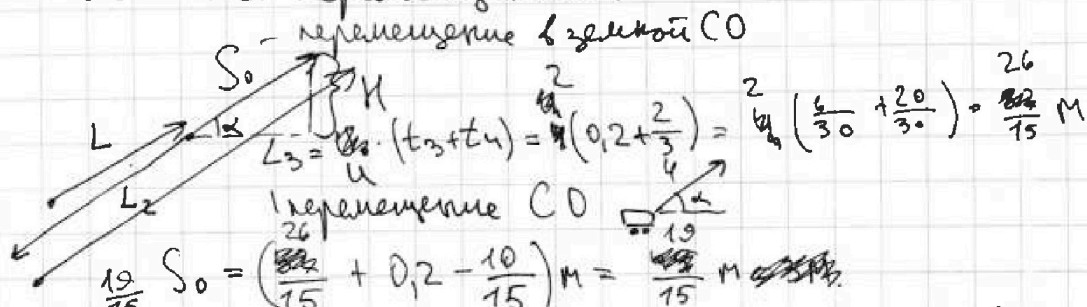 - перемещение в земной СО
S₀
H
L
α
L₃ = u · (t₃+t₄) = 2(0,2+2/3) = 2(6/30 + 20/30) = 26/15 м
L₂
перемещение СО
u
α
19/15 S₀ = (26/15 + 0,2 - 10/15) м = 19/15 м